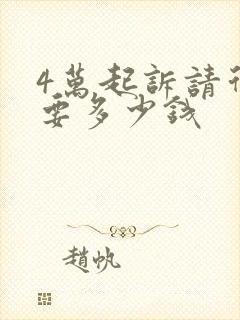 4萬起訴請律
要多少錢
趙帆